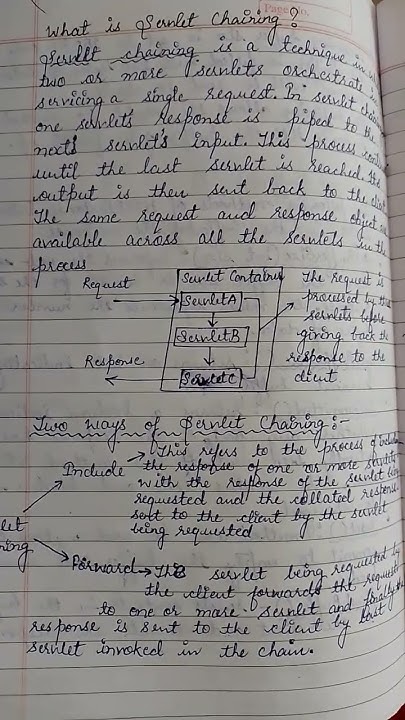 Page No.
What is Servlet Chaining?
Servlet chaining is a technique in
two or more servlets orchestrate
servicing a single request. In servlet
one servlet's response is piped to the
next servlet's input. This process
until the last servlet is reached. Its
output is then sent back to the
The same request and response object
available across all the servlets in the
process
Request
Servlet Container
ServletA
ServletB
Response
ServletC
The request is
processed by
servlets before
giving back the
response to the
client
Two Ways of Servlet Chaining :-
Include → This refers to the process of
the response of one or more
with the response of the servlet
requested and the collated response
sent to the client by the servlet
being requested.
Forward → The servlet being requested by
the client forwards the request
to one or more servlet and finally the
response is sent to the client by last
servlet invoked in the chain.